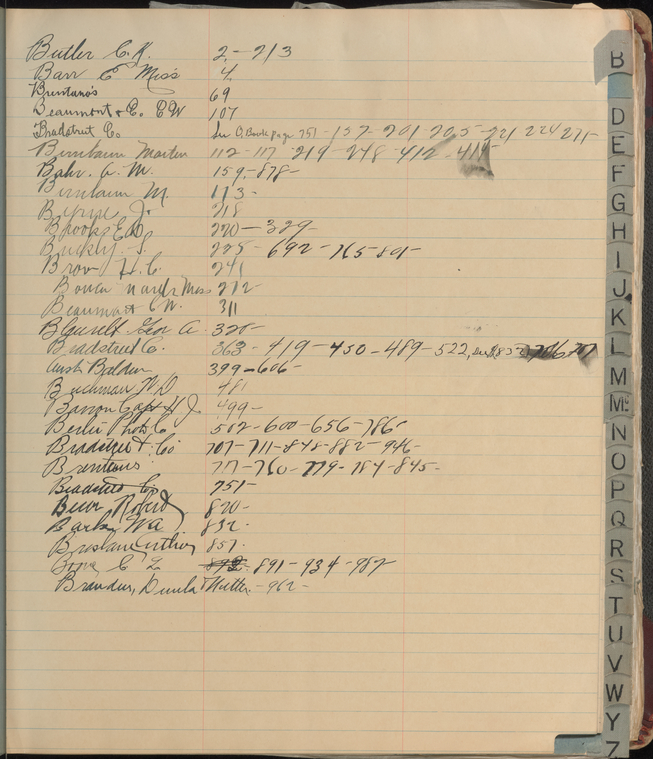 Butler C. K. 2 - 213
Barr E Miss 4
Brentano's 69
Beaumont & Co. E W 107
Bradstreet Co See O, Book page 751 - 157 - 201 - 205 - 221 224 271 -
Birnbaum Martin 112 - 117 - 219 - 248 - 412 - 415
Bahr. A. M. 159 - 878 -
Birnbaum M. 113 -
J. 218
Brooks E D 220 - 329 -
Buckly. S. 225 - 692 - 765 - 801 -
Brow H. C. 241
Miss 272
Beaumont E W. 311
Blauvelt Geo A. 320 -
Bradstreet C. 363 - 419 - 450 - 489 - 522,
Balden 399 - 606 -
Buchman 481
Barron Capt H J. 499 -
Berlin Photo C 502 - 600 - 656 - 786 -
Bradstreet & Co 707 - 711 - 848 - 882 - 946 -
Brentanos 717 - 760 - 779 - 784 - 845 -
Bradstreet Co 751 -
Robert 820 -
Barby Wa 832 -
Breslau Arthur 857 -
C L 892 - 891 - 934 - 987
Brandus, 962 -
B
D
E
F
G
H
I
J
K
L
M
Mc
N
O
P
Q
R
S
T
U
V
W
Y
Z